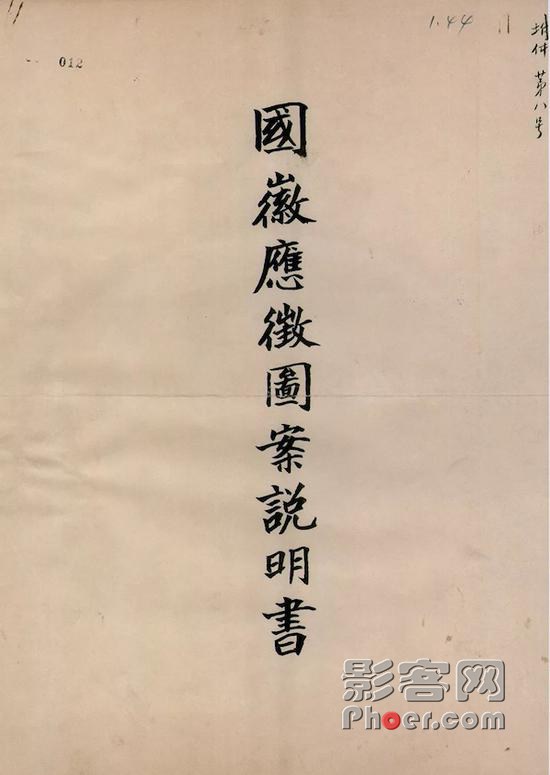 1.44
附件 第八号
012
國徽應徵圖案説明書
影客网
Phoer.com